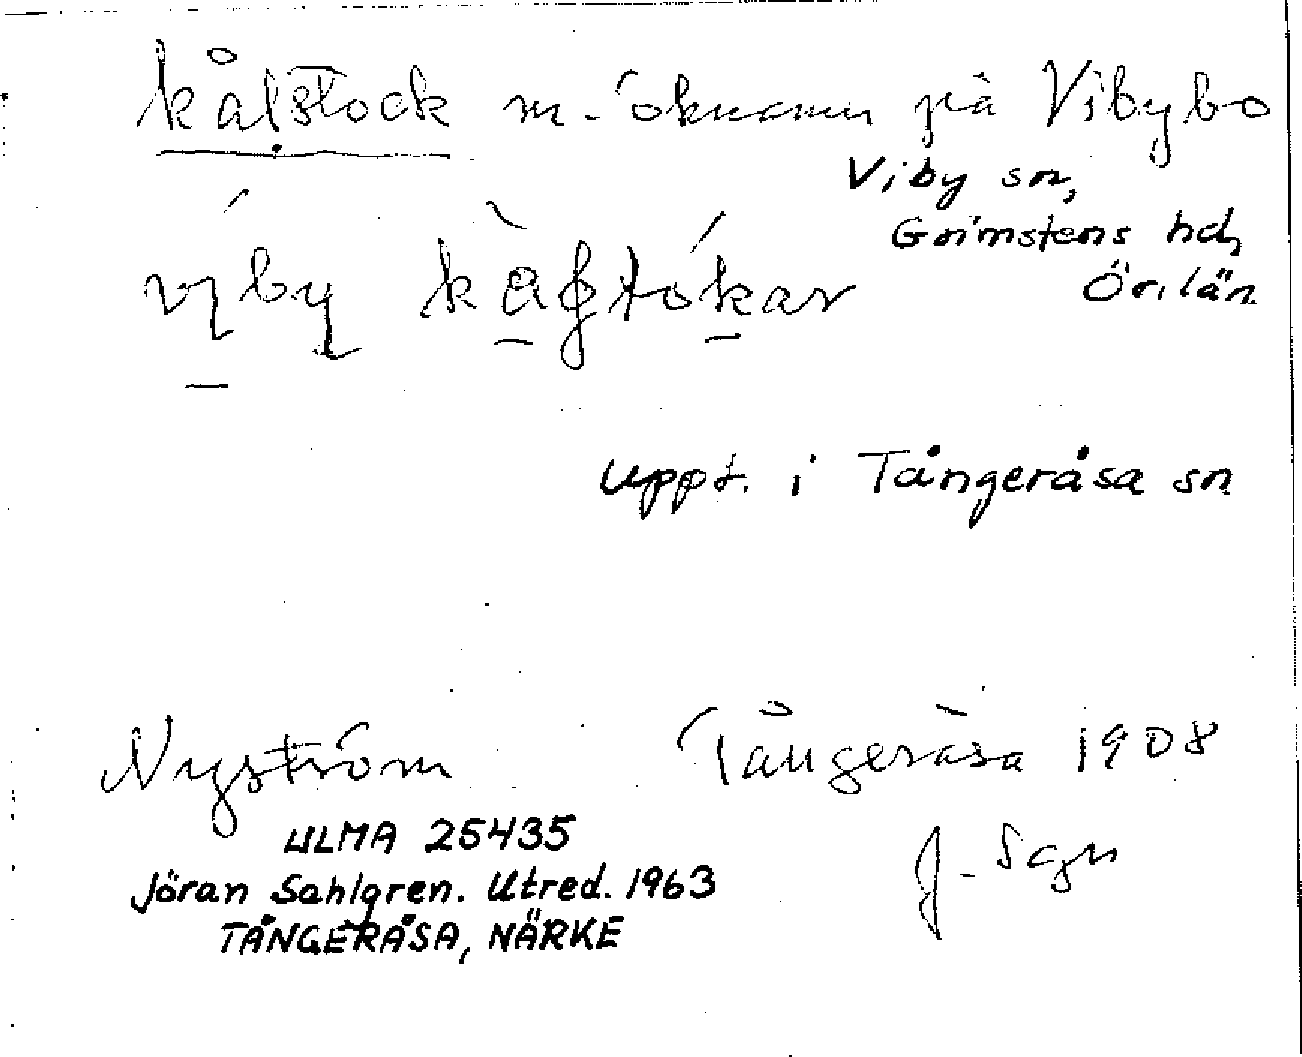 kålstock m. öknamn på Vibybo
Viby sn,
Grimstens hd,
Ör. län
viby kàlstókar
Uppt. i Tångeråsa sn
Nyström Tångeråsa 1908
ULMA 25435 J. Sgn
Jöran Sahlgren. Utred. 1963
TÅNGERÅSA, NÄRKE